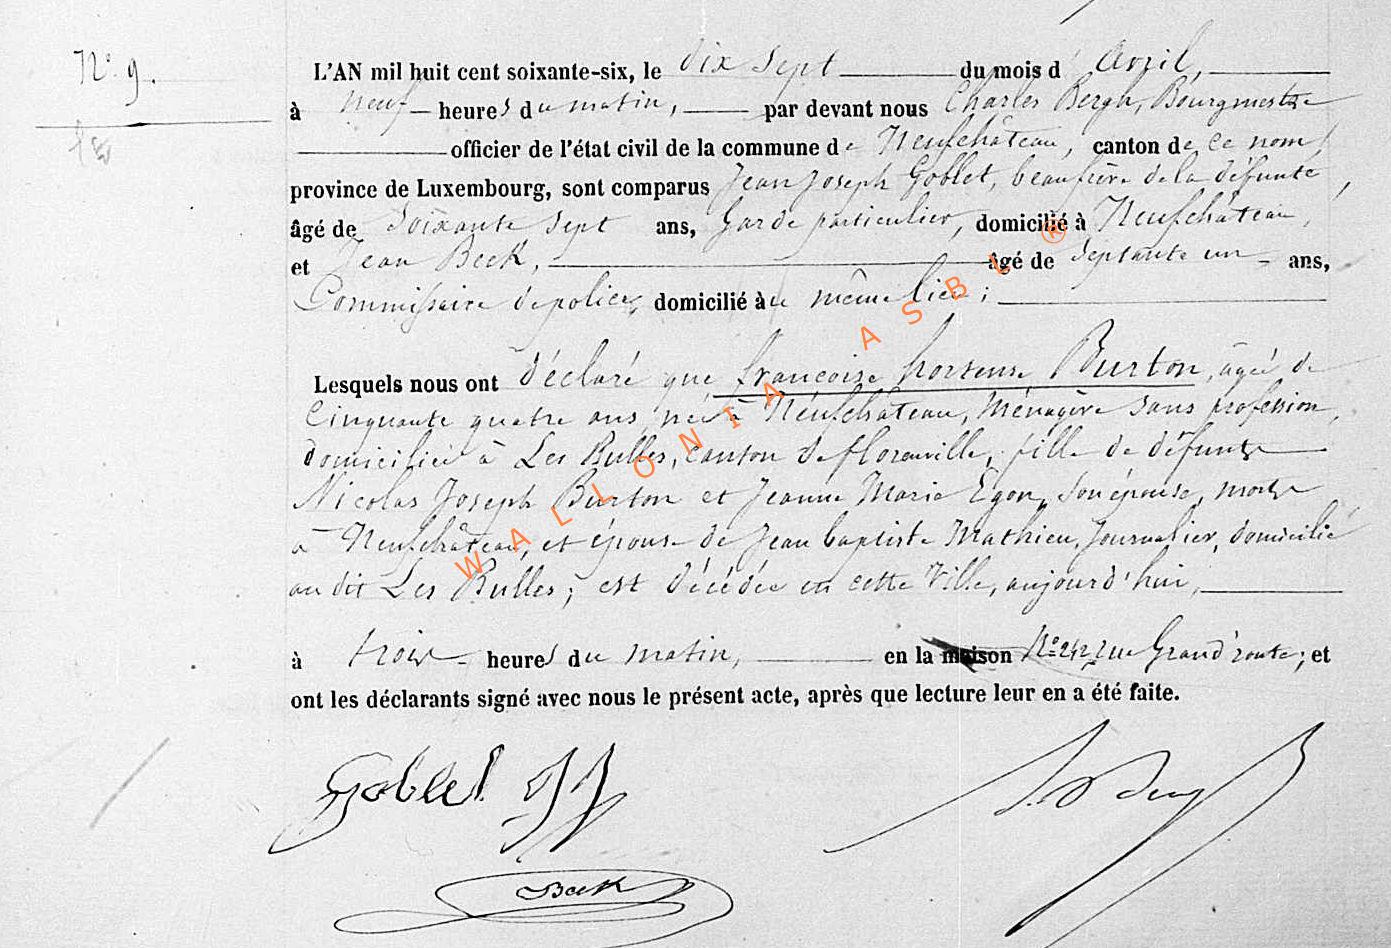 N° 9.
L'AN mil huit cent soixante-six, le dix sept du mois d'Avril,
à neuf heures du matin, par devant nous Charles Bergh, Bourgmestre
officier de l'état civil de la commune de Neufchâteau, canton de ce nom,
province de Luxembourg, sont comparus Jean Joseph Goblet, beaufrère de la défunte,
âgé de soixante sept ans, Garde particulier, domicilié à Neufchâteau,
et Jean Beck, âgé de septante un ans,
Commissaire de police, domicilié au même lieu;
Lesquels nous ont déclaré que françoise hortense Burton, âgée de
cinquante quatre ans, née à Neufchâteau, Ménagère sans profession,
domiciliée à Les Bulles, canton de florenville, fille de défunts
Nicolas Joseph Burton et Jeanne Marie Egon, son épouse, morts
à Neufchâteau, et épouse de Jean baptiste Mathieu, Journalier, domicilié
au dit Les Bulles; est décédée en cette Ville, aujourd'hui,
à trois heures du matin, en la maison N° 242 rue Grand'route; et
ont les déclarants signé avec nous le présent acte, après que lecture leur en a été faite.
Goblet JJ
Beck
WALLONIA ASBL ®